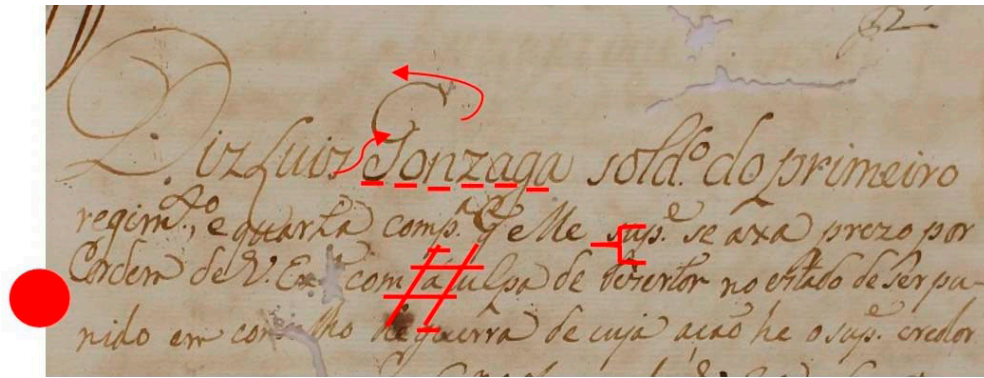 Diz Luiz Gonzaga sold.º do primeiro
regim.to, e quarta comp.ª q̃ elle sup.e se axa prezo por
ordem de V. Ex.ª com a culpa de dezertor no estado de ser pu-
nido em con lho de guerra de cuja acaõ he o sup.e credor